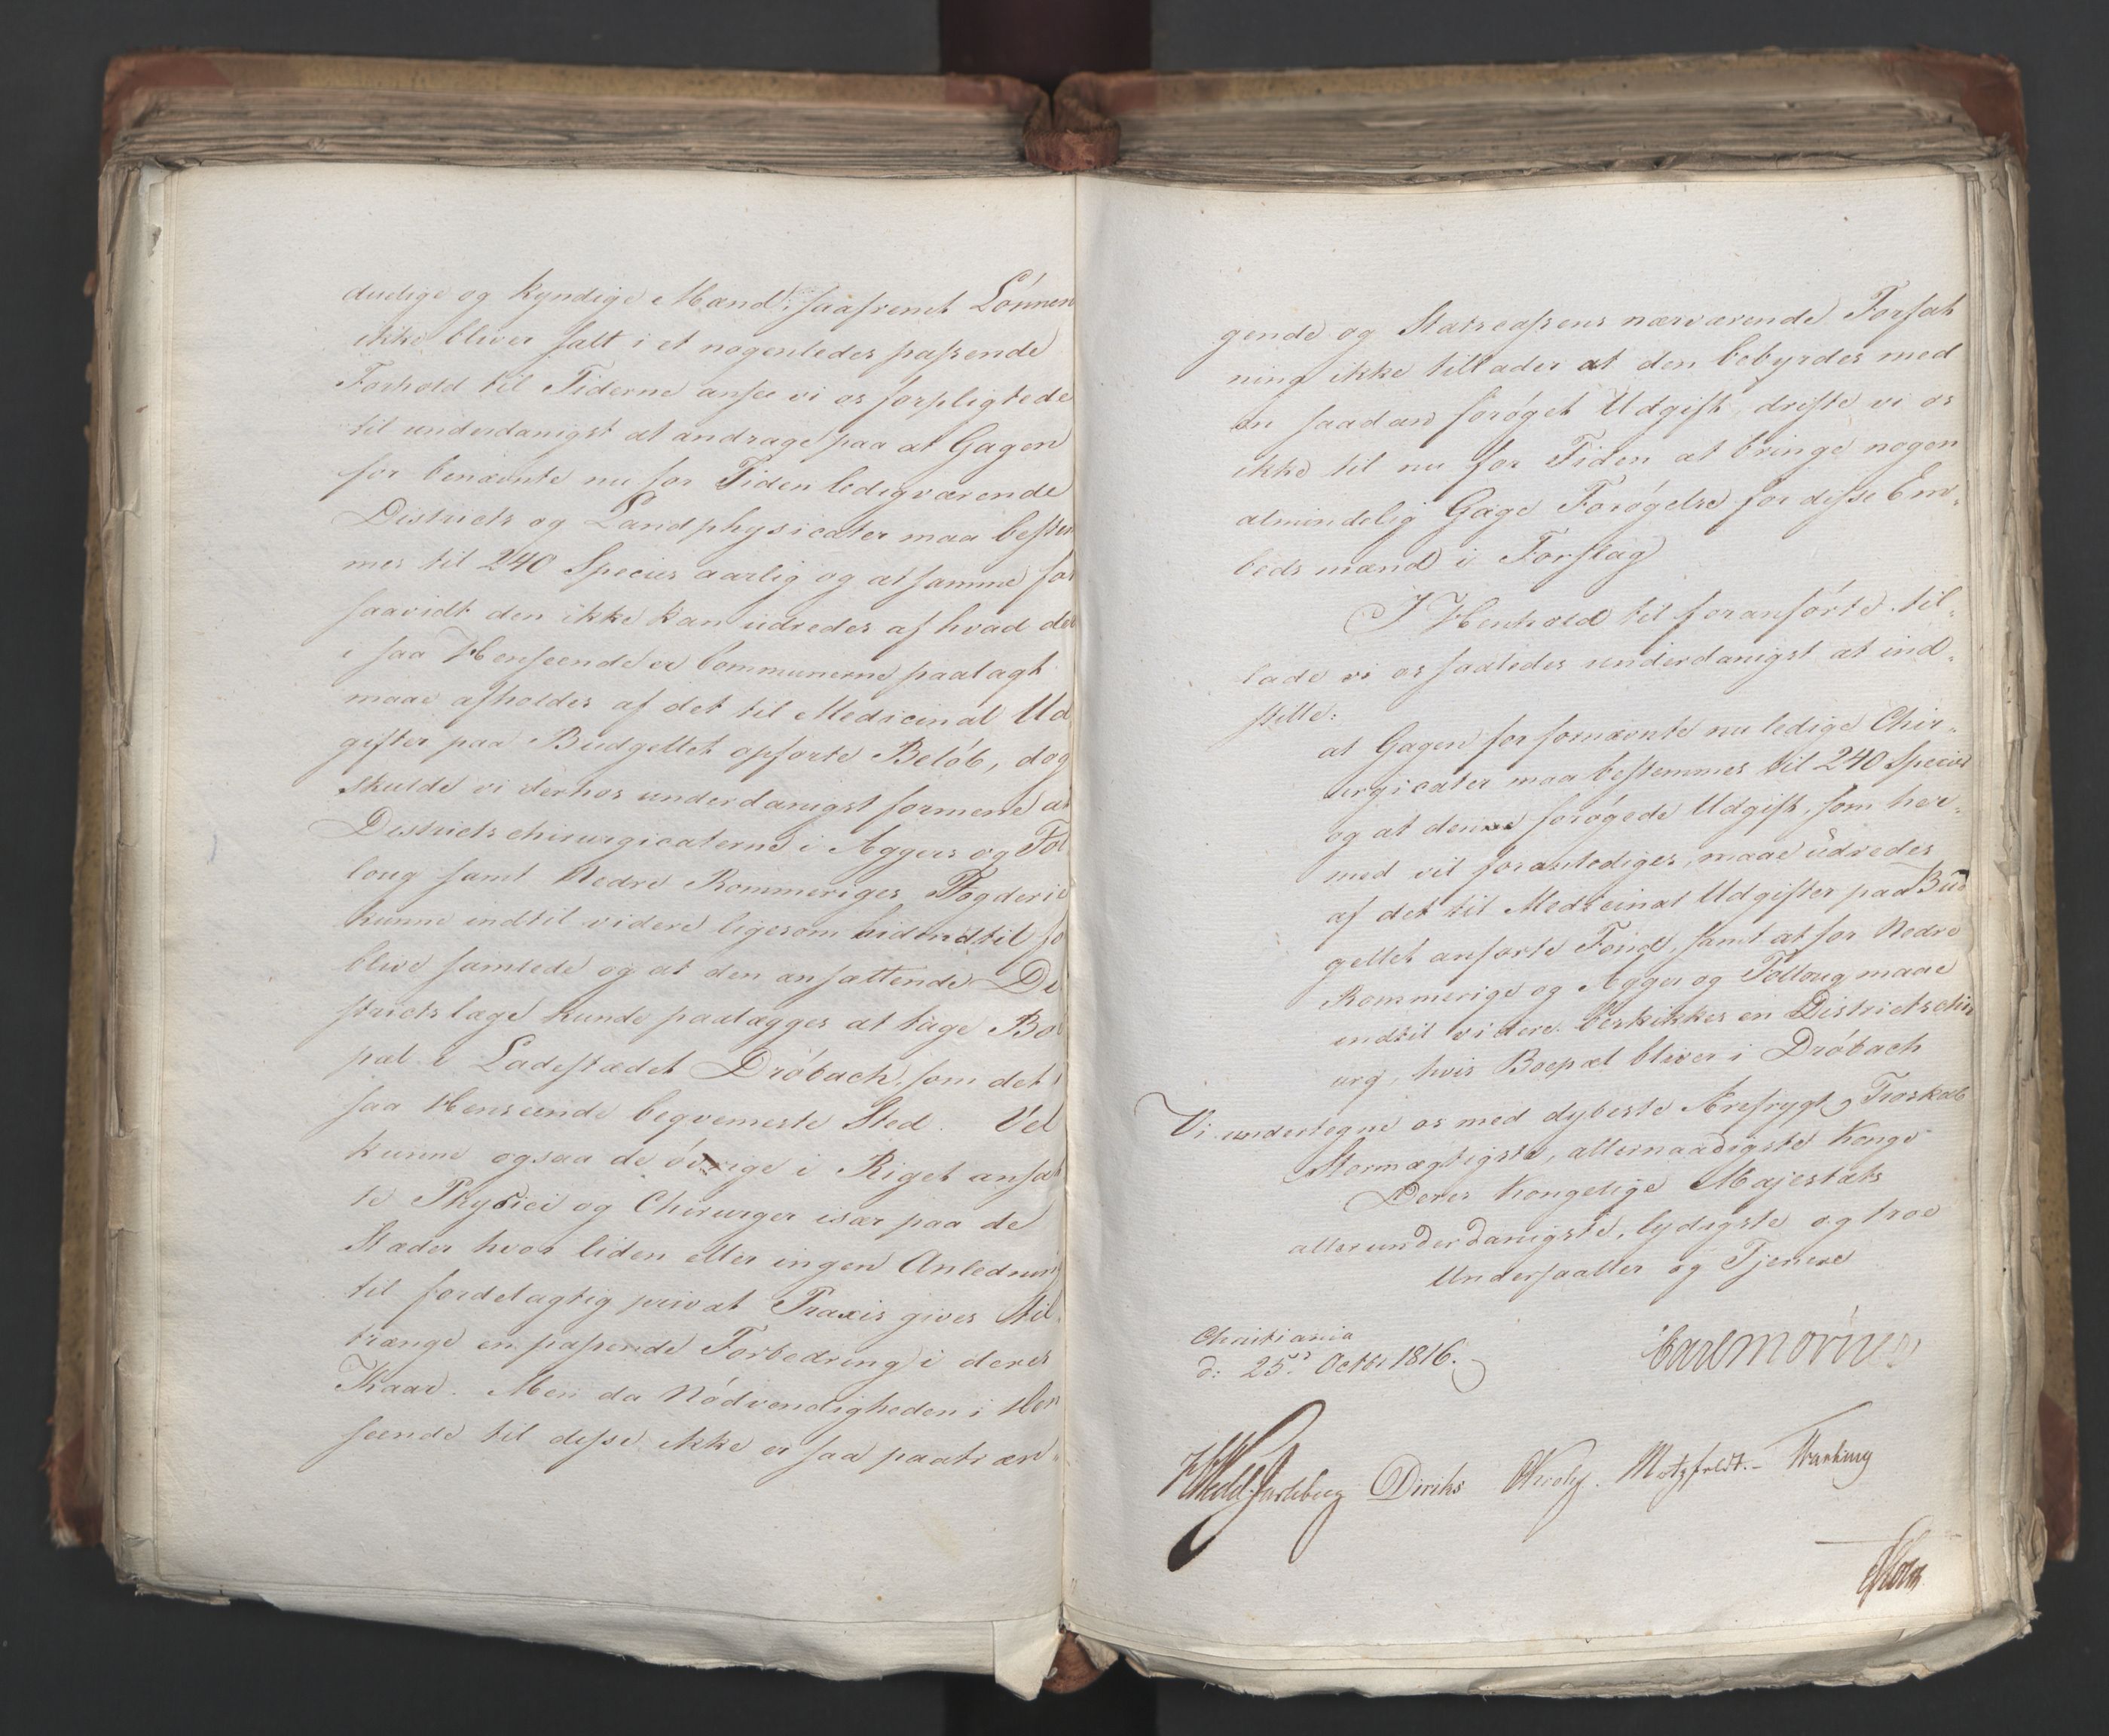 duelige og kyndige Mænd, saafremt Lönnen
ikke bliver satt i et nogenledes passende
Forhold til Tiderne ansee vi os forpligtede
til underdanigst at andrage paa at Gagen
for benævnte nu for Tiden ledigværende
Districts og Landphysicater maa bestem
mes til 240 Species aarlig og at samme for
saavidt den ikke kan udredes af hvad der
i saa Henseende er Communerne paalagt
maae afholdes af det til Medicinal Ud
gifter paa Budgettet opforte Belöb, dog
skulde vi derhos underdanigst formene at
Districtschirurgicaterne i Aggers og Fol
loug samt Nedre Rommeriges Fogderie
kunne indtil videre ligesom hidindtil
blive samlede og at den ansættende Di
strictslæge kunde paalægges at tage Bo
pæl i Ladestædet Dröbach, som det i
saa Henseende beqvemeste Sted. Vel
kunne ogsaa de övrige i Riget ansat
te Physici og Chirurger især paa de
Stæder hvor liden eller ingen Anledning
til fordelagtig privat Praxis gives til
trænge en passende Forbedring i deres
Kaar. Men da Nödvendigheden i Hen
seende til disse ikke er saa paatræn-
gende og Statscassens nærværende Forfat
ning ikke tillader at den bebyrdes med
en saadan foröget Udgift, driste vi os
ikke til nu for Tiden at bringe nogen
almindelig Gage Forögelse for disse Em-
beds mænd i Forslag
I Henhold til foranförte til-
lade vi os saaledes underdanigst at ind-
stille:
at Gagen for fornævnte nu ledige Chir-
urgicater maa bestemmes til 240 Species
og at denne forögede Udgift, som her-
med vil foranlediges, maae udredes
af det til Medicinal Udgifter paa Bud
gettet anforte Fond, samt at for Nedre
Rommerige og Agger og Folloug maae
indtil videre beskikkes en Districtschir
urg, hvis Boepæl bliver i Dröbach
Vi undertegne os med dybeste Ærefrygt og Troskab
Stormægtigste, allernaadigste Konge
Deres Kongelige Majestæts
allerunderdanigste, lydigste og troe
Undersaatter og Tjenere
Christiania
d: 25de Octbr 1816.
Carl Mörner
HWedel Jarlsberg Diriks Motzfeldt.-
Holm